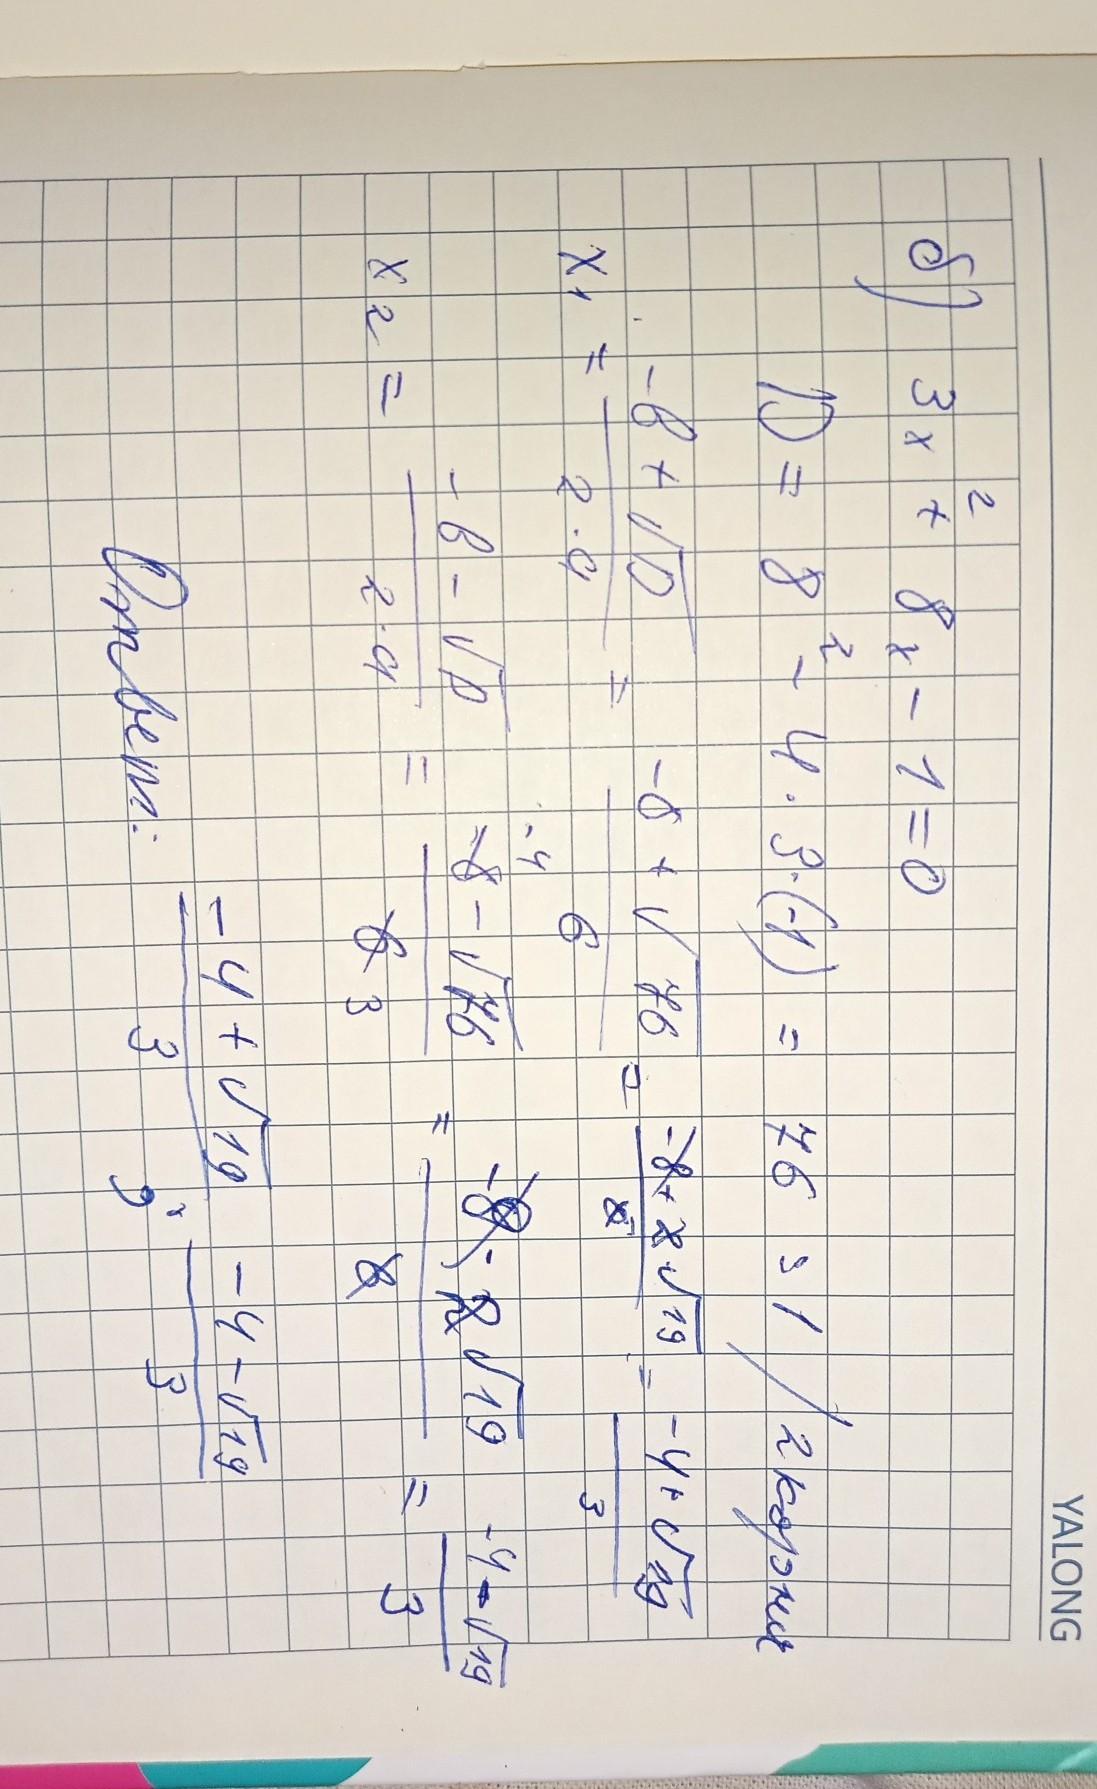 YALONG
б) 3x² + 8x - 1 = 0
D = 8² - 4 · 3 · (-1) = 76 > 1 / 2 корня
x₁ = (-в + √D) / (2 · a) = (-8 + √76) / 6 = (-8 + 2√19) / 6 = (-4 + √19) / 3
x₂ = (-в - √D) / (2 · a) = (-8 - √76) / 6 3 = (-8 - 2√19) / 6 = (-4 - √19) / 3
Ответ: (-4 + √19) / 3 ; (-4 - √19) / 3